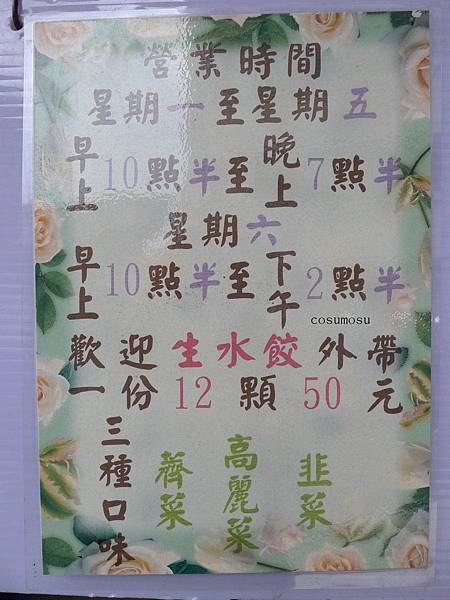 營業時間
星期一至星期五
早上10點半至晚上7點半
星期六
早上10點半至下午2點半
cosumosu
歡迎生水餃外帶
一份12顆50元
三種口味
薺菜
高麗菜
韭菜